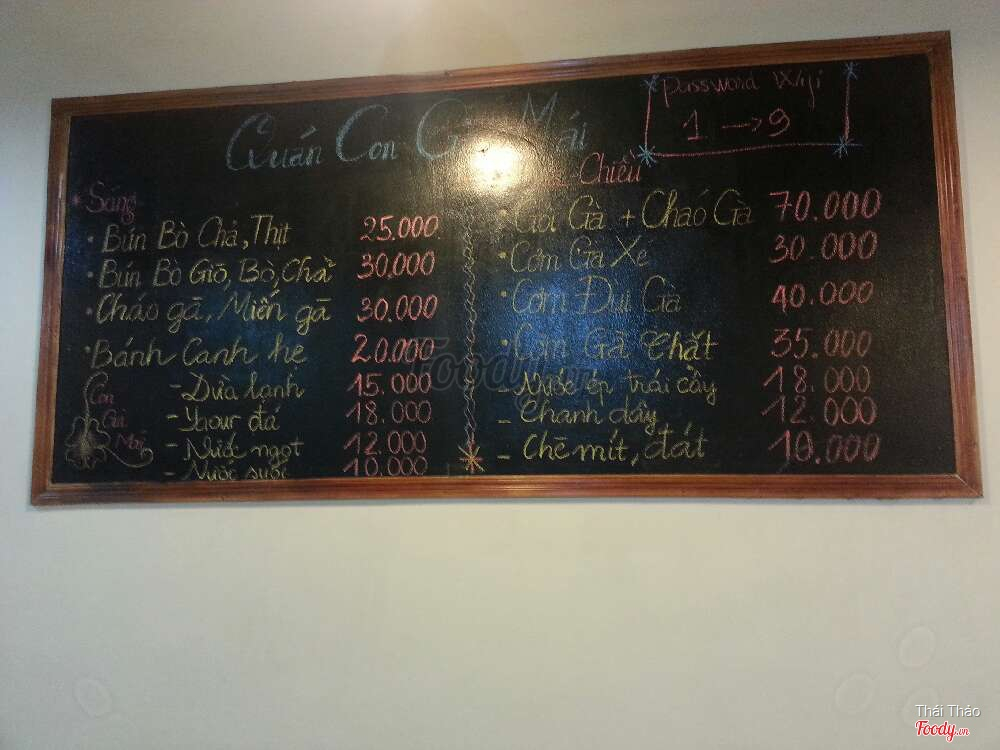 Quán Con Gà Mái
password Wifi
1 → 9
* Sáng
• Bún Bò Chả, Thịt 25.000
• Bún Bò Giò, Bò, Chả 30,000
• Cháo gà, Miến gà 30.000
• Bánh Canh hẹ 20.000
- Dừa lạnh 15.000
- Yaour đá 18.000
- Nước ngọt 12.000
- Nước suối 10.000
Con
Gà
Mái
Chiều
• Gỏi Gà + Cháo Gà 70.000
• Cơm Gà Xé 30.000
• Cơm Đùi Gà 40.000
• Cơm Gà Chặt 35.000
- Nước ép trái cây 18.000
- Chanh dây 12.000
- Chè mít, đát 10.000
Foody.vn
Thái Thảo
Foody.vn